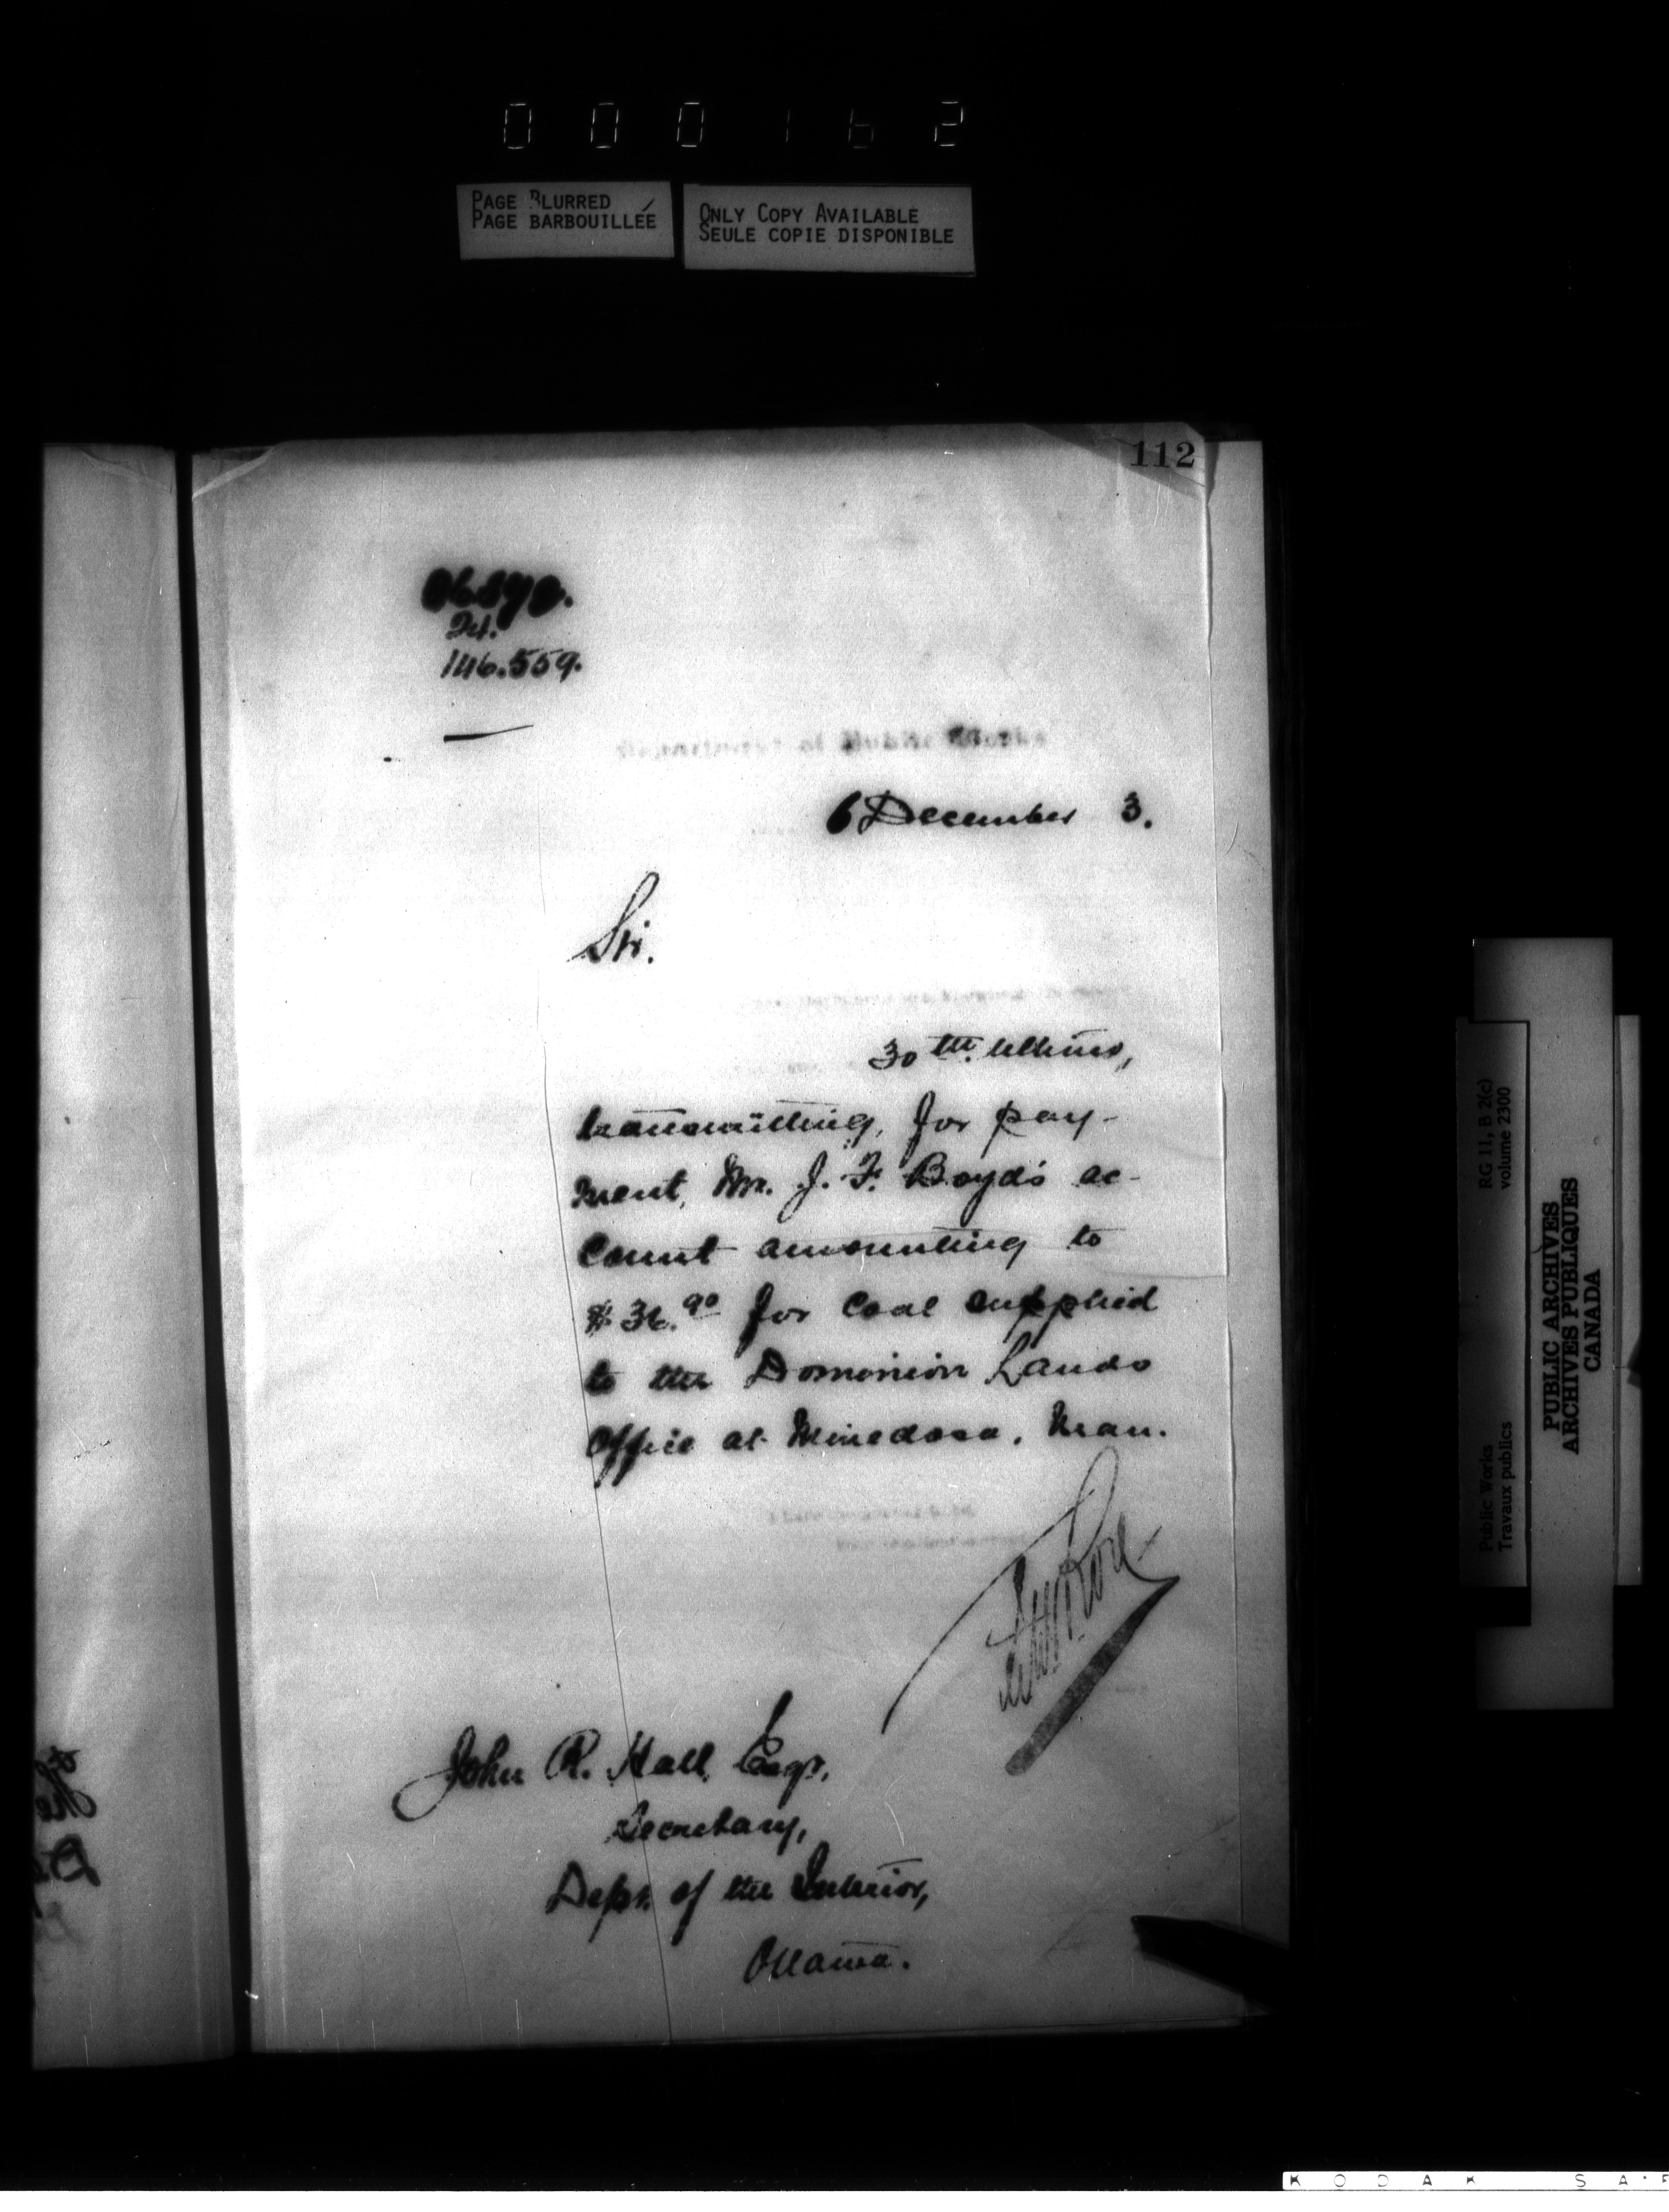 000162
PAGE BLURRED
PAGE BARBOUILLÉE
ONLY COPY AVAILABLE
SEULE COPIE DISPONIBLE
112
146.559.
Department of Public Works
6 December 3.
Sir.
30th. Ultimo,
transmitting, for pay-
ment, Mr. J. F. Boyd's ac-
count amounting to
$36.90 for coal supplied
to the Dominion Lands
Office at Minedosa, Man.
John R. Hall Esqr.
Secretary,
Dept. of the Interior,
Ottawa.
RG 11, B 2(c)
volume 2300
Public Works
Travaux publics
PUBLIC ARCHIVES
ARCHIVES PUBLIQUES
CANADA
KODAK